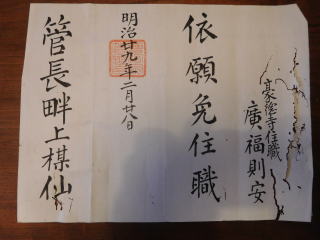 豪德寺住職
廣福則安
依願免住職
明治廿九年二月廿八日
管長畔上楳仙